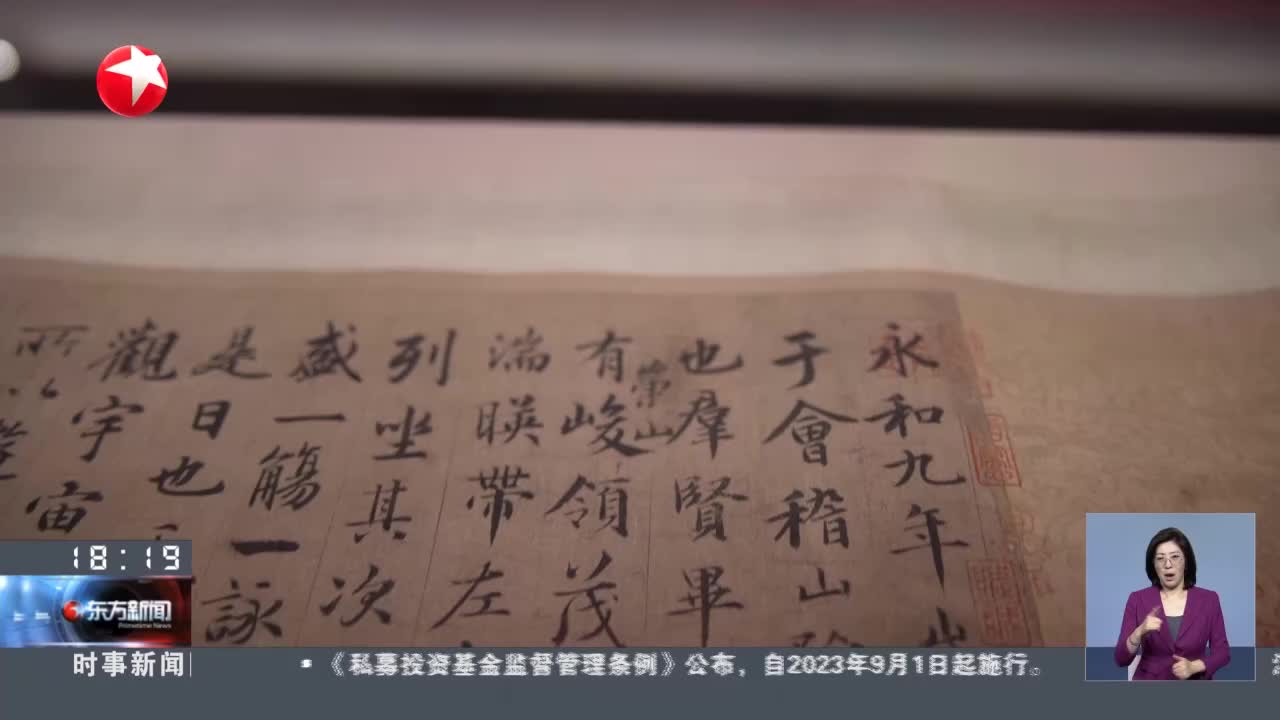 永和九年
于會稽山
也羣賢畢
崇山
有峻領茂
湍暎帶左
列坐其次
盛一觴一詠
是日也
觀宇宙
所
18:19
东方新闻
Primetime News
时事新闻
《私募投资基金监督管理条例》公布，自2023年9月1日起施行。